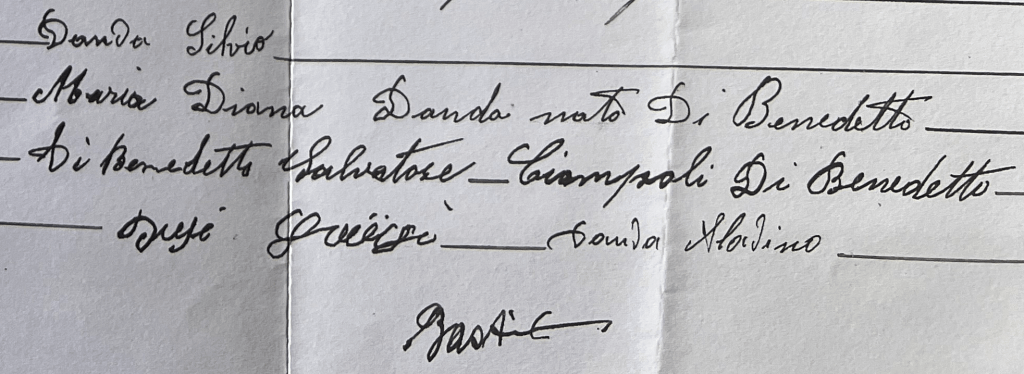 Danda Silvio
Maria Diana Danda nato Di Benedetto
Di Benedetto Salvatore Ciampoli Di Benedetto
Danda Aladino